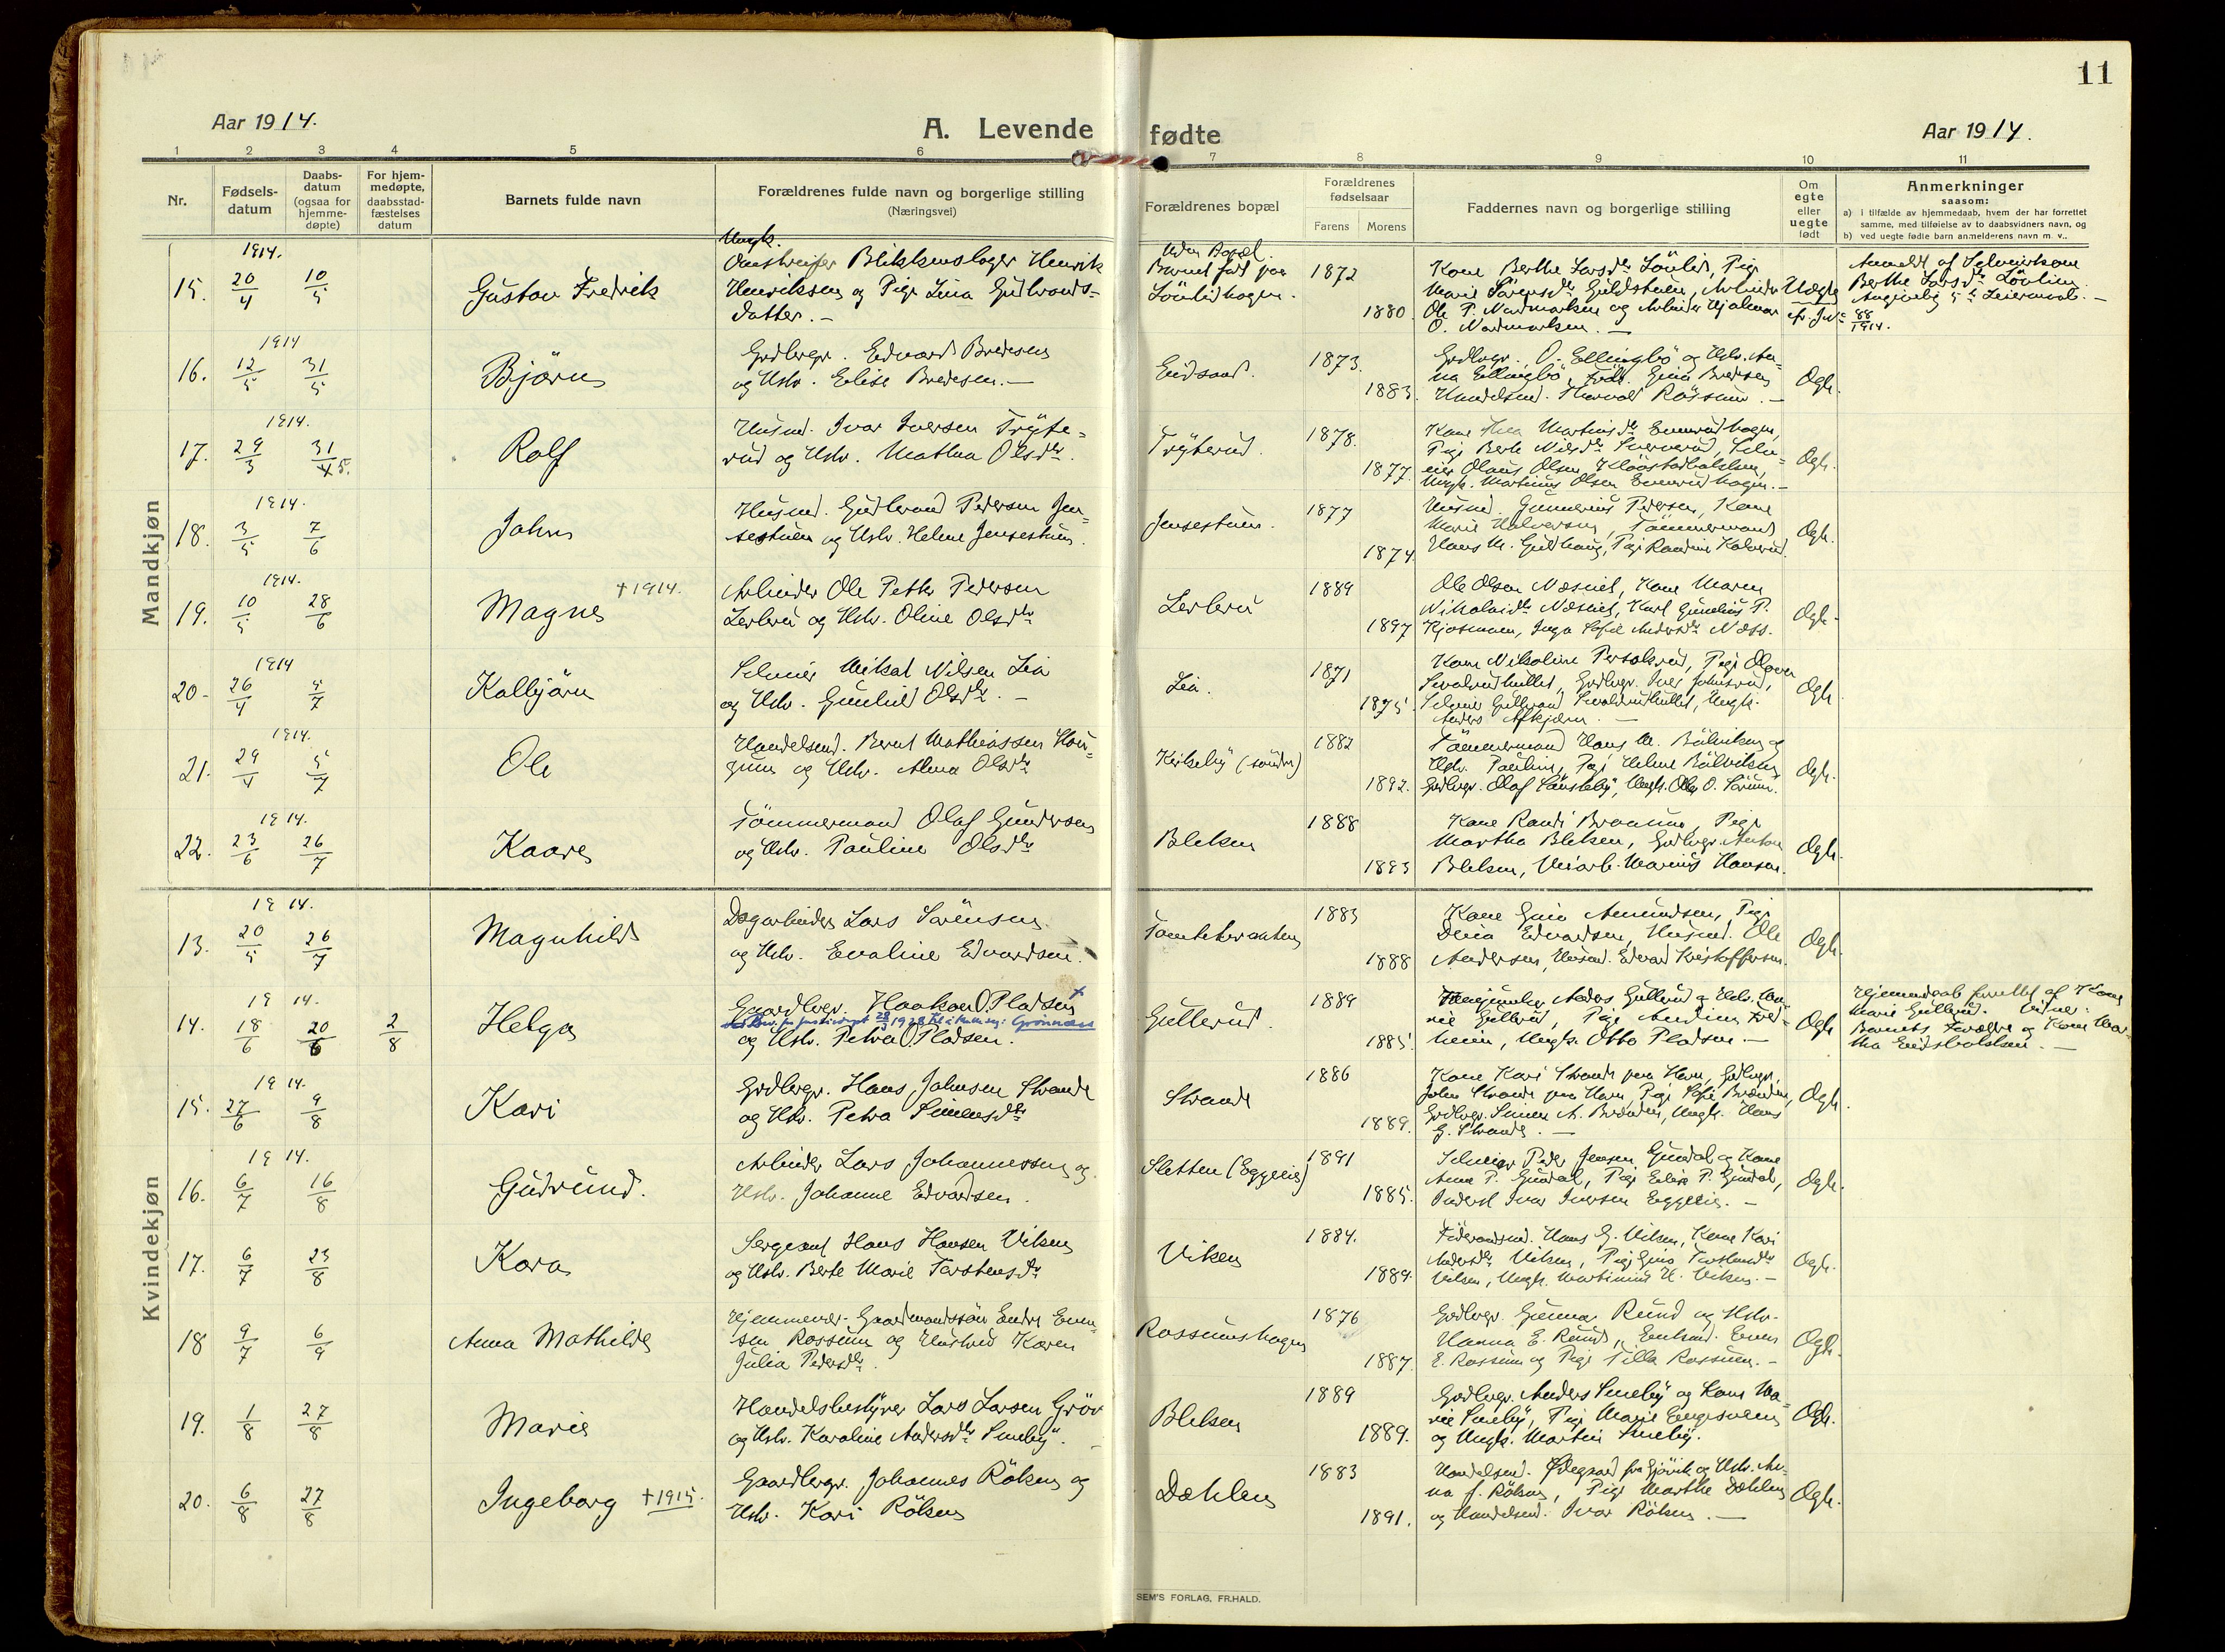 11
Aar 1914.
A. Levende fødte
Aar 1914.
1 2 3 4 5 6 7 8 9 10 11
Nr.
Fødsels-
datum
Daabs-
datum
(ogsaa for
hjemme-
døpte)
For hjem-
medøpte,
daabsstad-
fæstelses
datum
Barnets fulde navn
Forældrenes fulde navn og borgerlige stilling
(Næringsvei)
Forældrenes bopæl
Forældrenes
fødselsaar
Farens Morens
Faddernes navn og borgerlige stilling
Om
egte
eller
uegte
født
Anmerkninger
saasom:
a) i tilfælde av hjemmedaab, hvem der har forrettet
samme, med tilføielse av to daabsvidners navn, og
b) ved uegte fødte barn anmelderens navn m. v.
Mandkjøn
1914.
15. 20/4 10/5 Gustav Fredrik
Ungk.
Blikkenslager Henrik
Henriksen og Pige Lina Gulbrands-
datter. —
Uden Bopæl.
Barnet født paa
Lönlidhagen.
1872
1880
Kone Berthe Larsdtr Lönlid, Pige
Marie Sörensdtr Guldstuen, Arbeider
Ole P. Nordmarken og Arbeider Hjalmar
O. Nordmarken. —
Uægte
cfr. J.No 88/1914.
Anmeldt af Selveierkone
Berthe Larsdtr Lönlien.
Angivelig 5te Leiermaal. —
1914
16. 12/5 31/5 Björn
Grdbrgr. Edvard Bredesen
og Hstr. Elise Bredesen. —
Eidsand.
1873.
1883.
Grdbrgr. O. Ellingbö og Hstr. An-
na Ellingbö, Frök. Gina Bredesen
Handelsmd. Thorvald Rössum. —
Ægte.
1914.
17. 29/3 31/5. Rolf
Husmd. Ivar Iversen Tryte-
rud og Hstr. Mathea Olsdtr.
Tryterud.
1878.
1877.
Kone Thea Martinsdtr Evenrudhagen,
Pige Berte Nilsdtr
eier Olaus Olsen
Ungk. Martinus Olsen Evenrudhagen. —
Ægte.
1914.
18. 3/5 7/6 Johan
Husmd. Gudbrand Pedersen Jen-
sestuen og Hstr. Helene Jensestuen.
Jensestuen.
1877
1874.
Husmd. Gunnerius Pedersen, Kone
Marie Halvorsen, Tömmermand
Hans M. Guldhaug, Pige Randine
Ægte.
1914.
19. 10/5 28/6 Magne †1914.
Arbeider Ole Petter Pedersen
Lerberg og Hstr. Oline Olsdtr
1889
1897
Ole Olsen Næsset, Kone Maren
Nikolaidtr Næsset, Karl Gunelius P.
Kjosmoen, Inga Sofie Andersdtr Næss.
Ægte.
1914
20. 26/4 5/7 Kolbjörn
Selveier Mikal Nilsen Lia
og Hstr. Gunhild Olsdtr. —
Lia.
1871
1875.
Kone Nikoline Perskrud, Pige Olava
Sevalrudhullet, Grdbrgr. Iver Johnsrud,
Selveier Gulbrand Sevalrudhullet, Ungk.
Anders —
Ægte
1914.
21. 29/4 5/7 Ole
Handelsmd. Bernt Mathiassen Hau-
gum og Hstr. Alma Olsdtr
Kirkeby (söndre)
1882
1892.
Tömmermand Hans M. Bölviken og
Hstr. Pauline, Pige Helene Bölviken
Grdbrgr. Olaf Sönsteby, Ungk. Ole O. Sörum.
Ægte.
1914.
22. 23/6 26/7 Kaare
Tömmermand Olaf Gundersen
og Hstr. Pauline Olsdtr
Bleken
1888
1893
Kone Randi Braaum, Pige
Martha Bleken, Grdbrgr. Anton
Bleken, Marius Hansen.
Ægte.
Kvindekjøn
1914.
13. 20/5 26/7 Magnhild
Dagarbeider Lars Sörensen
og Hstr. Evaline Edvardsen.
Tomtebraaten
1883
1888
Kone Gina Amundsen, Pige
Dina Edvardsen, Husmd. Ole
Andersen, Husmd. Edvard Kristoffersen.
Ægte.
1914.
14. 18/6 20/6 2/8 Helga
Gaardbrgr. Haakon O. Pladsen
28/3 1928 Grönnæss
og Hstr. Petra O. Pladsen.
Gullerud.
1889
1885.
Anders Gullerud og Hstr. Ma-
rie Gullerud, Pige Andrine
heim, Ungk. Otto Pladsen —
Ægte
Hjemmedaab forrettet af Kone
Marie Gullerud. Vidner:
Barnets Forældre og Kone Mar-
tha Eidsbakken. —
1914.
15. 27/6 9/8 Kari
Grdbrgr. Hans Johnsen Strande
og Hstr. Petra Simensdtr
Strande
1886
1889.
Kone Kari Strande paa Haven, Grdbrgr.
John Strande paa Haven, Pige Sofie Brænden,
Grdbrgr. Simen A. Brænden, Ungk. Hans
G. Strande. —
Ægte.
1914.
16. 6/7 16/8 Gudrund.
Arbeider Lars Johannessen og
Hstr. Johanne Edvardsen.
Sletten (Eggeeie)
1891
1885.
Selveier Peder Jensen Gundal og Kone
Anne P. Gundal, Pige Elise P. Gundal,
Inderst Ivar Iversen Eggeeie. —
Ægte.
17. 6/7 23/8 Kara
Sergeant Hans Hansen Viken
og Hstr. Berte Marie Torstensdtr
Viken
1884.
1889.
Föderaadsmd. Hans G. Viken, Kone Kari
Andersdtr Viken, Pige Gina Torstensdtr
Viken, Ungk. Martinius H. Viken. —
Ægte.
18 9/7 6/9 Anna Mathilde
Hjemmevær. Gaardmandssön Endre Even-
sen Rossum og Hustrud Karen
Julia Pedersdtr.
Rossumshagen
1876
1887.
Grdbrgr. Gunnar Rund og Hstr.
Hanna E. Rund, Enkemd. Even
E. Rossum og Pige Tilla Rossum. —
Ægte.
19. 1/8 27/8 Marie
Handelsbestyrer Lars Larsen Gröv
og Hstr. Karoline Andersdtr Smeby.
Bleken
1889
1889.
Grdbrgr. Anders Smeby og Kone Ma-
rie Smeby, Pige Marie Engesveen
og Ungk. Martin Smeby.
Ægte.
20. 6/8 27/8 Ingeborg †1915.
Gaardbrgr. Johannes Röken og
Hstr. Kari Röken
Dæhlen
1883
1891.
Handelsmd. Ødegaard fra Gjövik og Hstr. An-
na f. Röken, Pige Marthe Dæhlen
og Handelsmd. Ivar Röken. —
Ægte.
SEM'S FORLAG, FR.HALD.